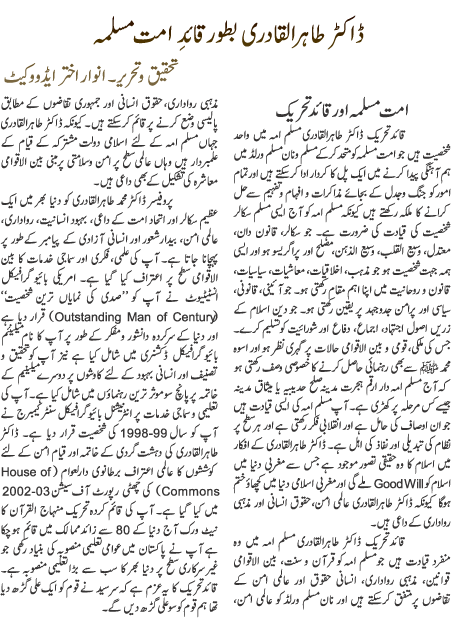 ڈاکٹر طاہرالقادری بطور قائدِ امت مسلمہ
تحقیق و تحریر۔ انوار اختر ایڈووکیٹ
امت مسلمہ اور قائد تحریک
قائد تحریک ڈاکٹر طاہرالقادری مسلم امہ میں واحد
شخصیت ہیں جو امت مسلمہ کو متحد کر کے مسلم و نان مسلم ورلڈ میں
ہم آہنگی پیدا کرنے میں ایک پل کا کردار ادا کر سکتے ہیں اور تمام
امور کو جنگ و جدل کے بجائے مذاکرات و افہام و تفہیم سے حل
کرانے کا ملکہ رکھتے ہیں کیونکہ مسلم امہ کو آج ایسی مسلم سکالر
شخصیت کی قیادت کی ضرورت ہے۔ جو سکالر، قانون دان،
معتدل، وسیع القلب، وسیع الذہن، مصلح اور پراگریسو ہو اور ایسی
ہمہ جہت شخصیت ہو جو مذہب، اخلاقیات، معاشیات، سیاسیات،
قانون و روحانیت میں اپنا اہم مقام رکھتی ہو۔ جو آئینی، قانونی،
سیاسی اور پرامن جدوجہد پر یقین رکھتی ہو۔ جو دین اسلام کے
زریں اصول اجتہاد، اجماع، دفاع اور شورائیت کو تسلیم کرے۔
جس کی ملکی، قومی و بین الاقوامی حالات پر گہری نظر ہو اور اسوہ
محمد ﷺ سے بھی رہنمائی حاصل کرنے کا خصوصی وصف رکھتی ہو
کہ آج مسلم امہ دار ارقم ہجرت مدینہ صلح حدیبیہ یا میثاق مدینہ
جیسے کس مرحلہ پر کھڑی ہے۔ آپ مسلم امہ کی ایسی قیادت ہیں
جو ان اوصاف کی حامل ہے اور انقلابی فکر رکھتی ہے اور ہر سطح پر
نظام کی تبدیلی اور نفاذ کی اہل ہے۔ ڈاکٹر طاہرالقادری کے افکار
میں اسلام کا وہ حقیقی تصور موجود ہے جس سے مغربی دنیا میں
اسلام کو Good Will ملے گی اور مغربی اسلامی دنیا میں کھچاؤ ختم
ہوگا کیونکہ ڈاکٹر طاہرالقادری عالمی امن، حقوق انسانی اور مذہبی
رواداری کے داعی ہیں۔
قائد تحریک ڈاکٹر طاہرالقادری مسلم امہ میں وہ
منفرد قیادت ہیں جو مسلم امہ کو قرآن و سنت، بین الاقوامی
قوانین، مذہبی رواداری، انسانی حقوق اور عالمی امن کے
تقاضوں پر متفق کر سکتے ہیں اور نان مسلم ورلڈ کو عالمی امن،
مذہبی رواداری، حقوق انسانی اور جمہوری تقاضوں کے مطابق
پالیسی وضع کرنے پر قائم کر سکتے ہیں۔ کیونکہ ڈاکٹر طاہرالقادری
جہاں مسلم امہ کے لئے اسلامی دولت مشترکہ کے قیام کے
علمبردار ہیں وہاں عالمی سطح پر امن و سلامتی پر مبنی بین الاقوامی
معاشرہ کی تشکیل کے بھی داعی ہیں۔
پروفیسر ڈاکٹر محمد طاہرالقادری کو دنیا بھر میں ایک
عظیم سکالر اور اتحاد امت کے داعی، بہبود انسانیت، رواداری،
عالمی امن، بیداری شعور اور انسانی آزادی کے پیامبر کے طور پر
پہچانا جاتا ہے۔ آپ کی علمی، فکری اور سماجی خدمات کا بین
الاقوامی سطح پر اعتراف کیا گیا ہے۔ امریکی بائیوگرافیکل
انسٹیٹیوٹ نے آپ کو "صدی کی نمایاں ترین شخصیت"
(Outstanding Man of Century) قرار دیا ہے
اور دنیا کے سرکردہ دانشور و مفکر کے طور پر آپ کا نام میلینیئم
بائیوگرافیکل ڈکشنری میں شامل کیا ہے نیز آپ کو تحقیق و
تصنیف اور انسانی بہبود کے لئے کاوشوں پر دوسرے میلینیئم کے
خاتمہ پر پانچ سو موثر ترین رہنماؤں میں شامل کیا ہے۔ آپ کی
تعلیمی و سماجی خدمات پر انٹرنیشنل بائیوگرافیکل سنٹر کیمبرج نے
آپ کو سال 99-1998 کی شخصیت قرار دیا ہے۔ ڈاکٹر
طاہرالقادری کی دہشت گردی کے خاتمہ اور قیام امن کے لئے
کوششوں کا عالمی اعتراف برطانوی دارالعوام (House of
Commons) کی چھٹی رپورٹ آف سیشن 03-2002
میں کیا گیا ہے۔ آپ کی قائم کردہ تحریک منہاج القرآن کا
نیٹ ورک آج دنیا کے 80 سے زائد ممالک میں قائم ہو چکا
ہے آپ نے پاکستان میں عوامی تعلیمی منصوبہ کی بنیاد رکھی جو
غیر سرکاری سطح پر دنیا بھر کا سب سے بڑا تعلیمی منصوبہ ہے۔
قائد تحریک کا یہ عزم ہے کہ سرسید نے قوم کو ایک علی گڑھ دیا
تھا ہم قوم کو سو علی گڑھ دیں گے۔